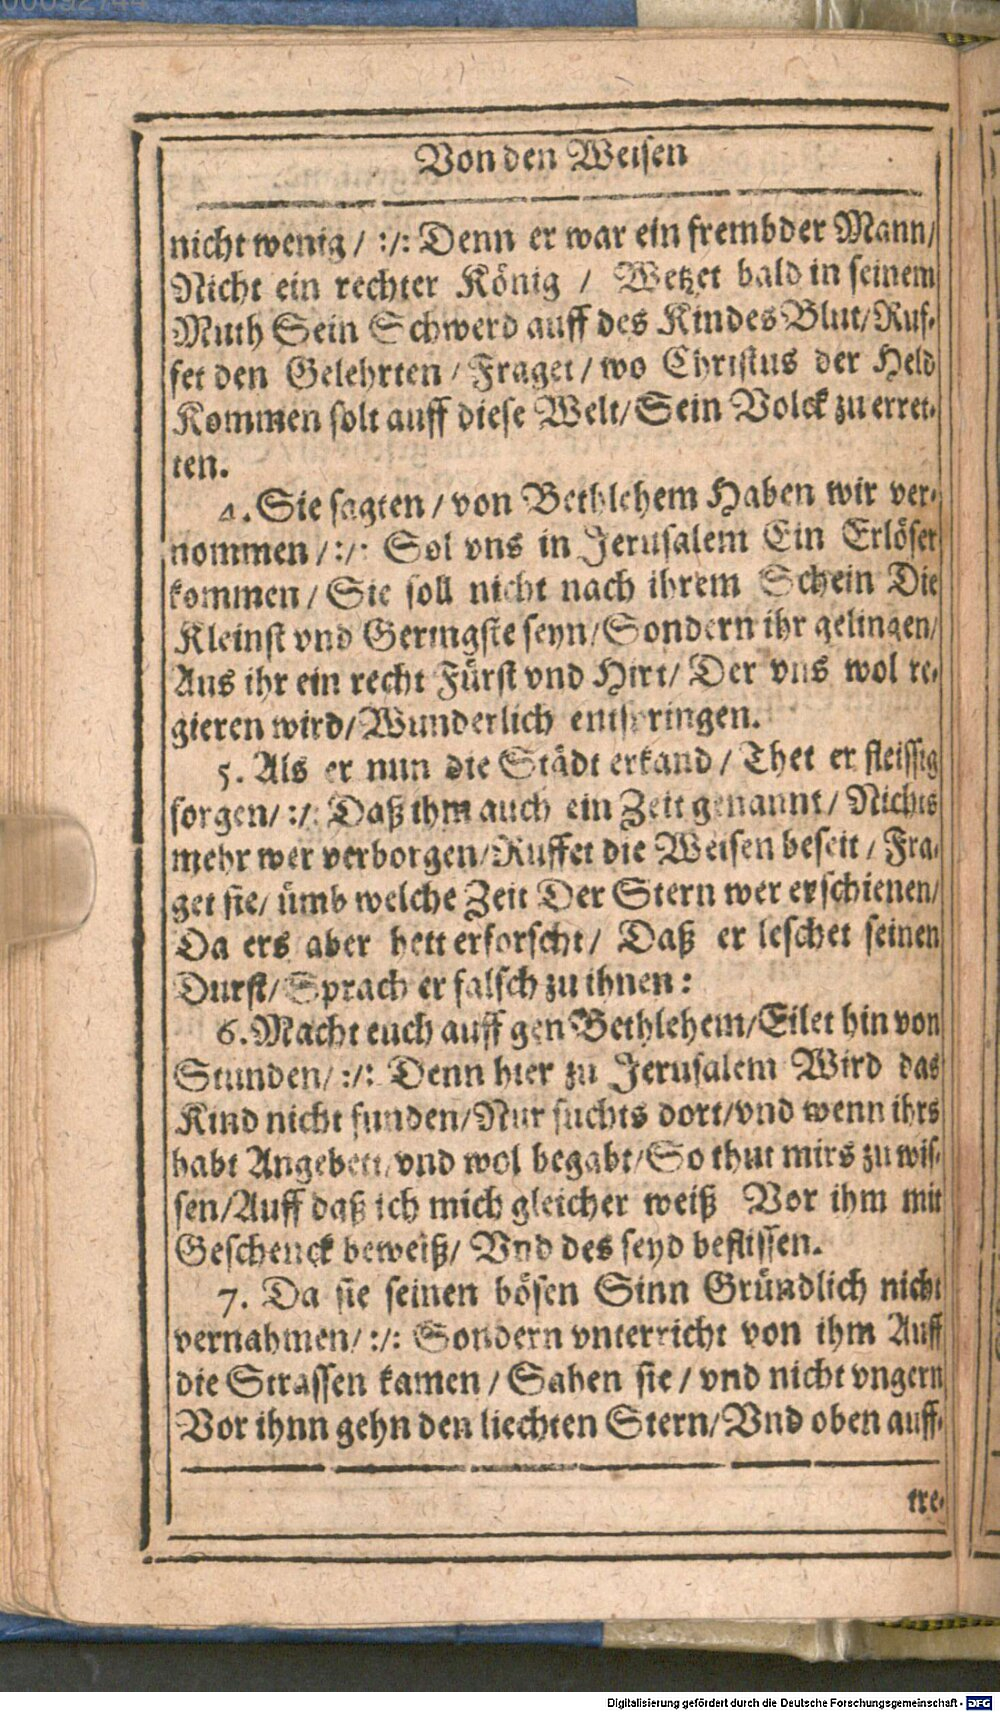 Von den Weisen
nicht wenig / :/: Denn er war ein frembder Mann/
Nicht ein rechter König / Wetzet bald in seinem
Muth Sein Schwerd auff des Kindes Blut/Ruf-
fet den Gelehrten / Fraget / wo Christus der Held
Kommen solt auff diese Welt/Sein Volck zu erret-
ten.
4. Sie sagten / von Bethlehem Haben wir ver-
nommen / :/: Sol vns in Jerusalem Ein Erlöser
kommen / Sie soll nicht nach ihrem Schein Die
Kleinst vnd Geringste seyn/Sondern ihr gelingen/
Aus ihr ein recht Fürst vnd Hirt/ Der vns wol re-
gieren wird/Wunderlich entspringen.
5. Als er nun die Städt erkand / Thet er fleissig
sorgen/ :/: Daß ihm auch ein Zeit genannt/ Nichts
mehr wer verborgen/Ruffet die Weisen beseit / Fra-
get sie/ ümb welche Zeit Der Stern wer erschienen/
Da ers aber hett erforscht/ Daß er leschet seinen
Durst/ Sprach er falsch zu ihnen:
6. Macht euch auff gen Bethlehem/Eilet hin von
Stunden/ :/: Denn hier zu Jerusalem Wird das
Kind nicht funden/Nur suchts dort/vnd wenn ihrs
habt Angebett/vnd wol begabt/So thut mirs zu wis-
sen/Auff daß ich mich gleicher weiß Vor ihm mit
Geschenck beweiß/ Vnd des seyd beflissen.
7. Da sie seinen bösen Sinn Gründlich nicht
vernahmen/ :/: Sondern vnterricht von ihm Auff
die Strassen kamen / Sahen sie / vnd nicht vngern
Vor ihnn gehn den liechten Stern/Vnd oben auff-
tre-
Digitalisierung gefördert durch die Deutsche Forschungsgemeinschaft - DFG